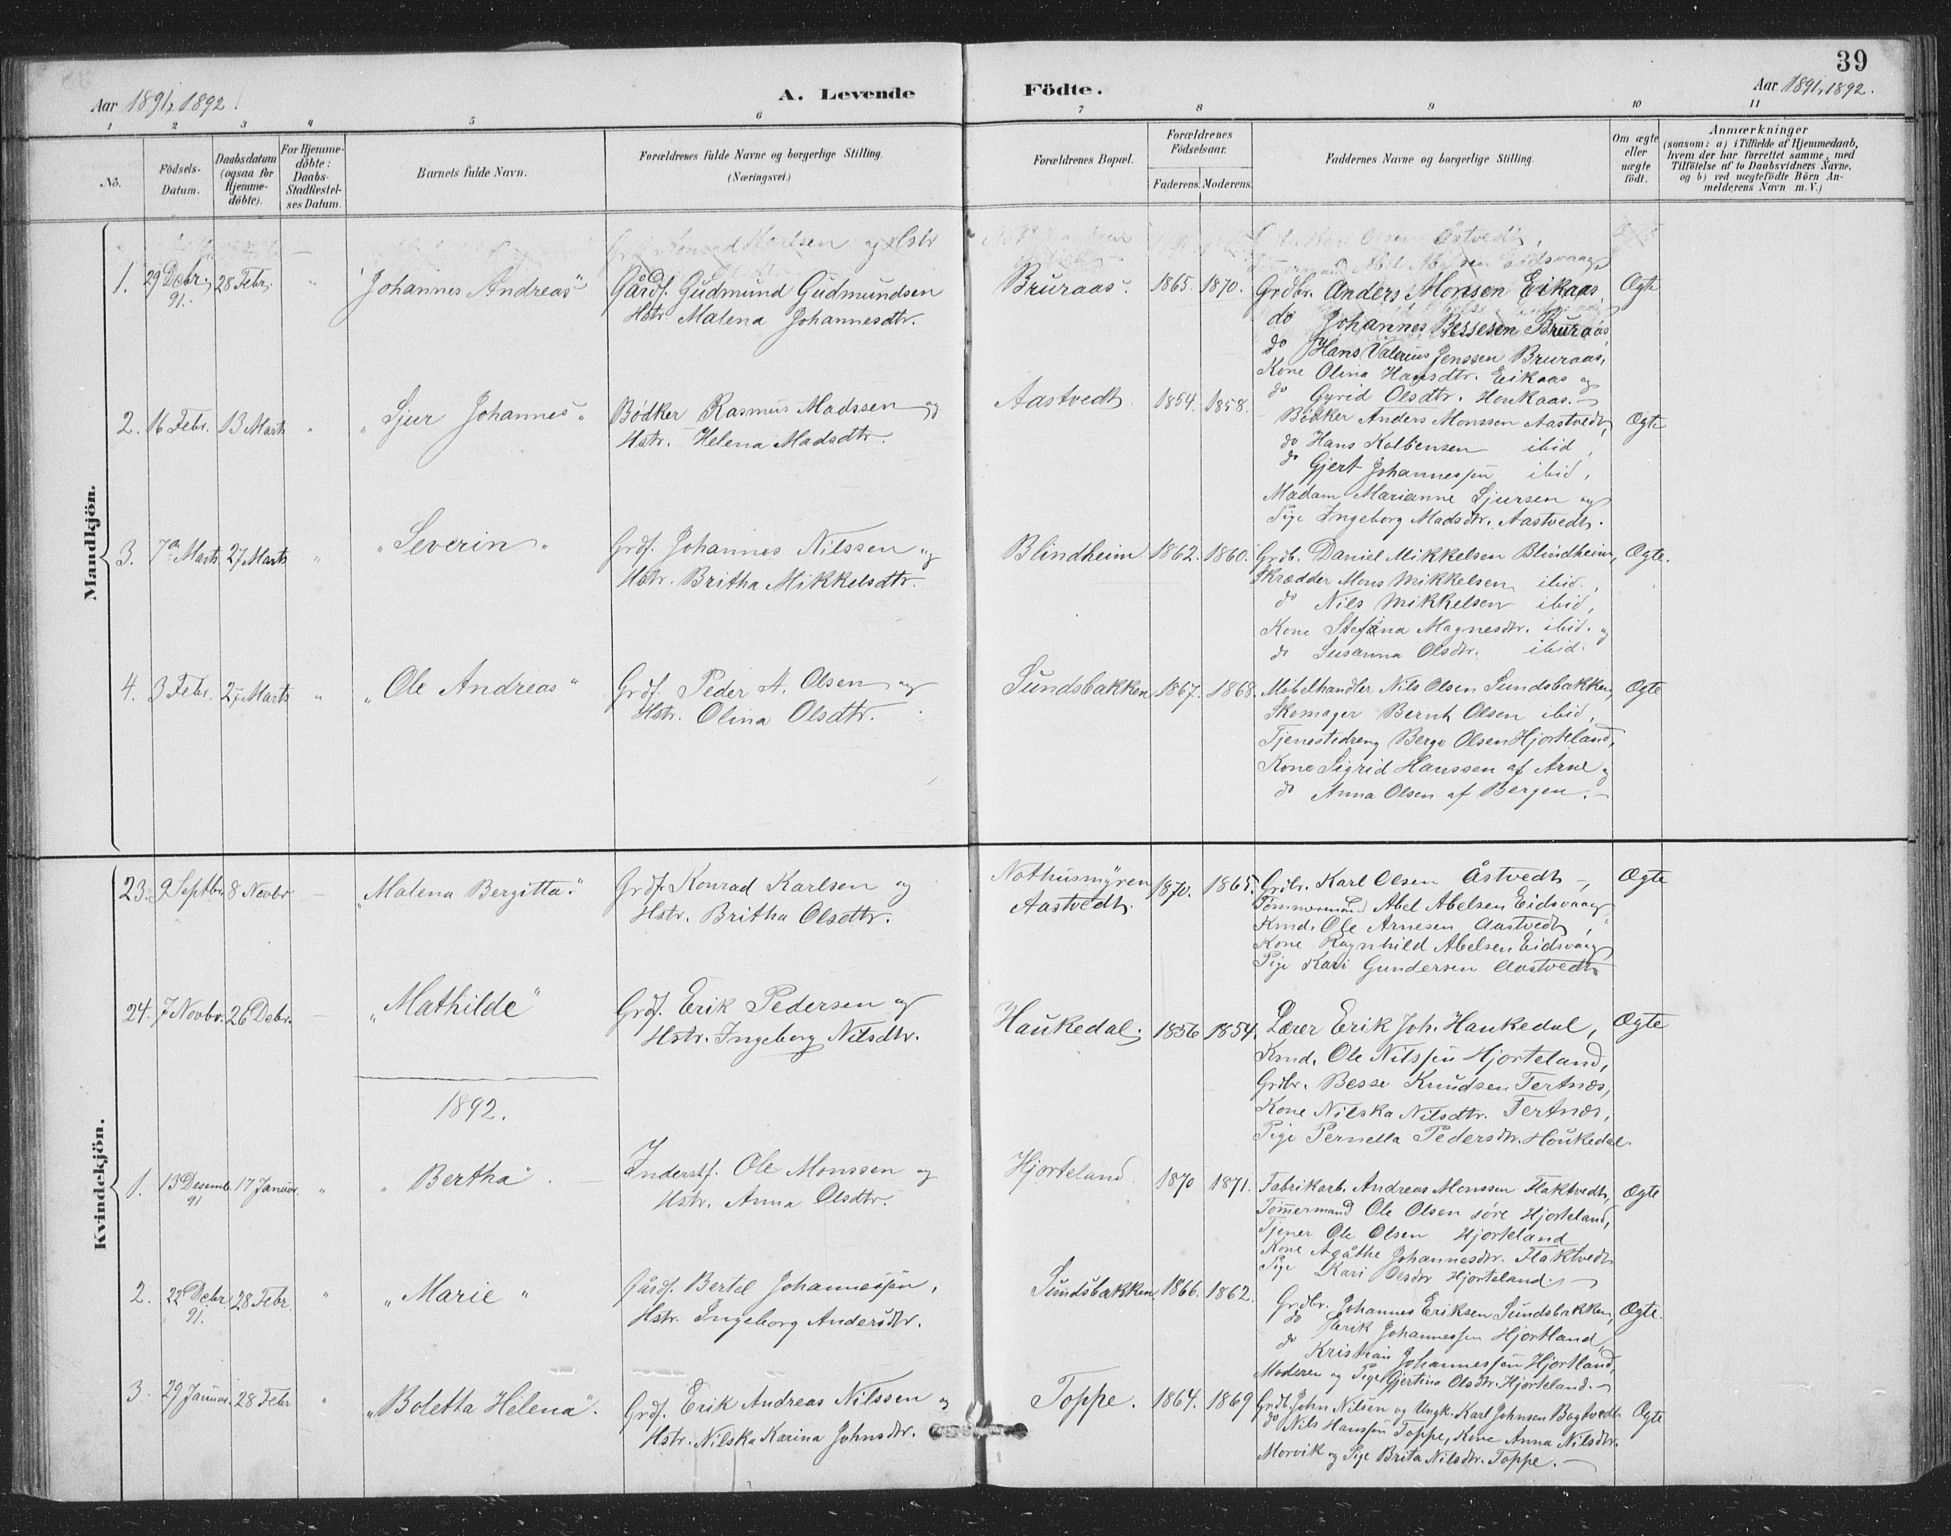 39
Aar 1891, 1892.
A. Levende Födte.
Aar 1891, 1892.
1 2 3 4 5 6 7 8 9 10 11
No.
Födsels-Datum.
Daabsdatum (ogsaa for Hjemmedöbte).
For Hjemmedöbte: Daabs-Stadfæstelses Datum.
Barnets fulde Navn.
Forældrenes fulde Navne og borgerlige Stilling.
(Næringsvei.)
Forældrenes Bopæl.
Forældrenes Födselsaar.
Faderens. Moderens.
Faddernes Navne og borgerlige Stilling.
Om ægte eller uægte födt.
Anmærkninger
(saasom: a) i Tilfælde af Hjemmedaab, hvem der har forrettet samme, med Tilföielse af to Daabsvidners Navne, og b) ved uægtefödte Börn Anmelderens Navn m. V.)
Mandkjön.
1. 29 Debr. 91. 28 Febr. " "Johannes Andreas" Gårdf. Gudmund Gudmundsen
Hstr. Malena Johannesdtr.
Bruraas. 1865. 1870. Grdbr. Anders Monsen Eikaas, Ægte
do Johannes Bessesen Bruraas,
do Hans Valerius Jenssen Bruraas,
Kone Olina Hansdtr. Eikaas og
do Gyrid Olsdtr. Houkaas.
2. 16 Febr. 13 Marts " "Sjur Johannes" Bødker Rasmus Madssen og
Hstr. Helena Madsdtr.
Aastvedt. 1854. 1858. Bödker Anders Monssen Aastvedt, Ægte
do Hans Kolbensen ibid,
do Gjert Johannessen ibid,
Madam Marianne Sjursen og
Pige Ingeborg Madsdtr. Aastvedt.
3. 7de Marts 27 Marts " "Severin" Grdf. Johannes Nilssen og
Hstr. Britha Mikkelsdtr.
Blindheim 1862. 1860. Grdb. Daniel Mikkelsen Blindheim, Ægte.
Skrædder Mons Mikkelsen ibid.,
do Nils Mikkelsen ibid,
Kone Stefana Magnesdtr. ibid. og
do Susanna Olsdtr. ibid.
4. 3 Febr. 27 Marts " "Ole Andreas" Grdf. Peder A. Olsen og
Hstr. Olina Olsdtr.
Sundsbakken 1867. 1868. Møbelhandler Nils Olsen Sundsbakken, Ægte
Skomager Bernt Olsen ibid,
Tjenestedreng Berge Olsen Hjorteland,
Kone Sigrid Hanssen af Arne og
do Anna Olsen af Bergen.
Kvindekjön.
23. 9 Septbr. 8 Novbr. "Malena Bergitta" Grdf. Konrad Karlsen og
Hstr. Britha Olsdtr.
Nothusmyren Aastvedt. 1870. 1865. Grdbr. Karl Olsen Åstvedt, Ægte
Tømmermand Abel Abelsen Eidsvaag,
Kmd. Ole Arnesen Aastvedt,
Kone Ragnhild Abelsen Eidsvaag
Pige Kari Gundersen Aastvedt
24. 7 Novbr. 26 Debr. "Mathilde" Grdf. Erik Pedersen og
Hstr. Ingeborg Nilsdtr.
Haukedal. 1856 1854. Lærer Erik Joh. Haukedal, Ægte
Kmd. Ole Nilssen Hjorteland,
Grdbr. Besse Knudsen Tertnæs,
Kone Nilska Nilsdtr. Tertnæs,
Pige Pernella Pedersdtr. Houkedal.
1892.
1. 13 Desembr 91 17 Januar. " "Bertha" Inderstf. Ole Monssen og
Hstr. Anna Olsdtr.
Hjorteland. 1870 1871. Fabrikarb. Andreas Monssen Flaktvedt, Ægte
Tømmermand Ole Olsen søre Hjorteland,
Tjener Ole Olsen Hjorteland
Kone Agåthe Johannesdtr. Flaktvedt
Pige Kari Olsdtr Hjorteland.
2. 22 Debr 91. 28 Febr. " "Marie" Gårdf. Bertel Johannessen,
Hstr. Ingeborg Andersdtr.
Sundsbakken. 1866. 1862. Grdbr. Johannes Eriksen Sundsbakken, Ægte.
do Erik Johannessen Hjortland,
do Kristian Johannessen Hjortland,
Moderen og Pige Gjertina Olsdtr. Hjorteland.
3. 29 Januar. 28 Febr " "Boletta Helena". Grdf. Erik Andreas Nilssen og
Hstr. Nilska Karina Johnsdtr.
Toppe. 1864. 1869 Grdb. John Nilsen og Ungk. Karl Johnsen Bogtvedt. Ægte
do Nils Hanssen Toppe, Kone Anna Nilsdtr.
Morvik og Pige Brita Nilsdtr. Toppe.